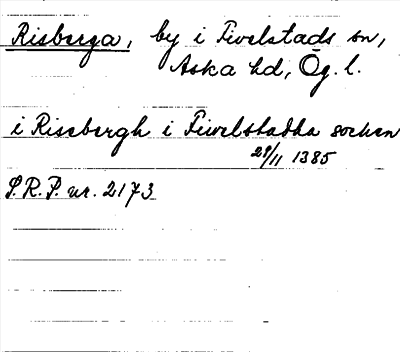 Risberga, by i Fivelstads sn,
Aska hd, Ög. l.
i Rissbergh i Fiivelstadha socken
28/11 1385
S.R.P. nr. 2173